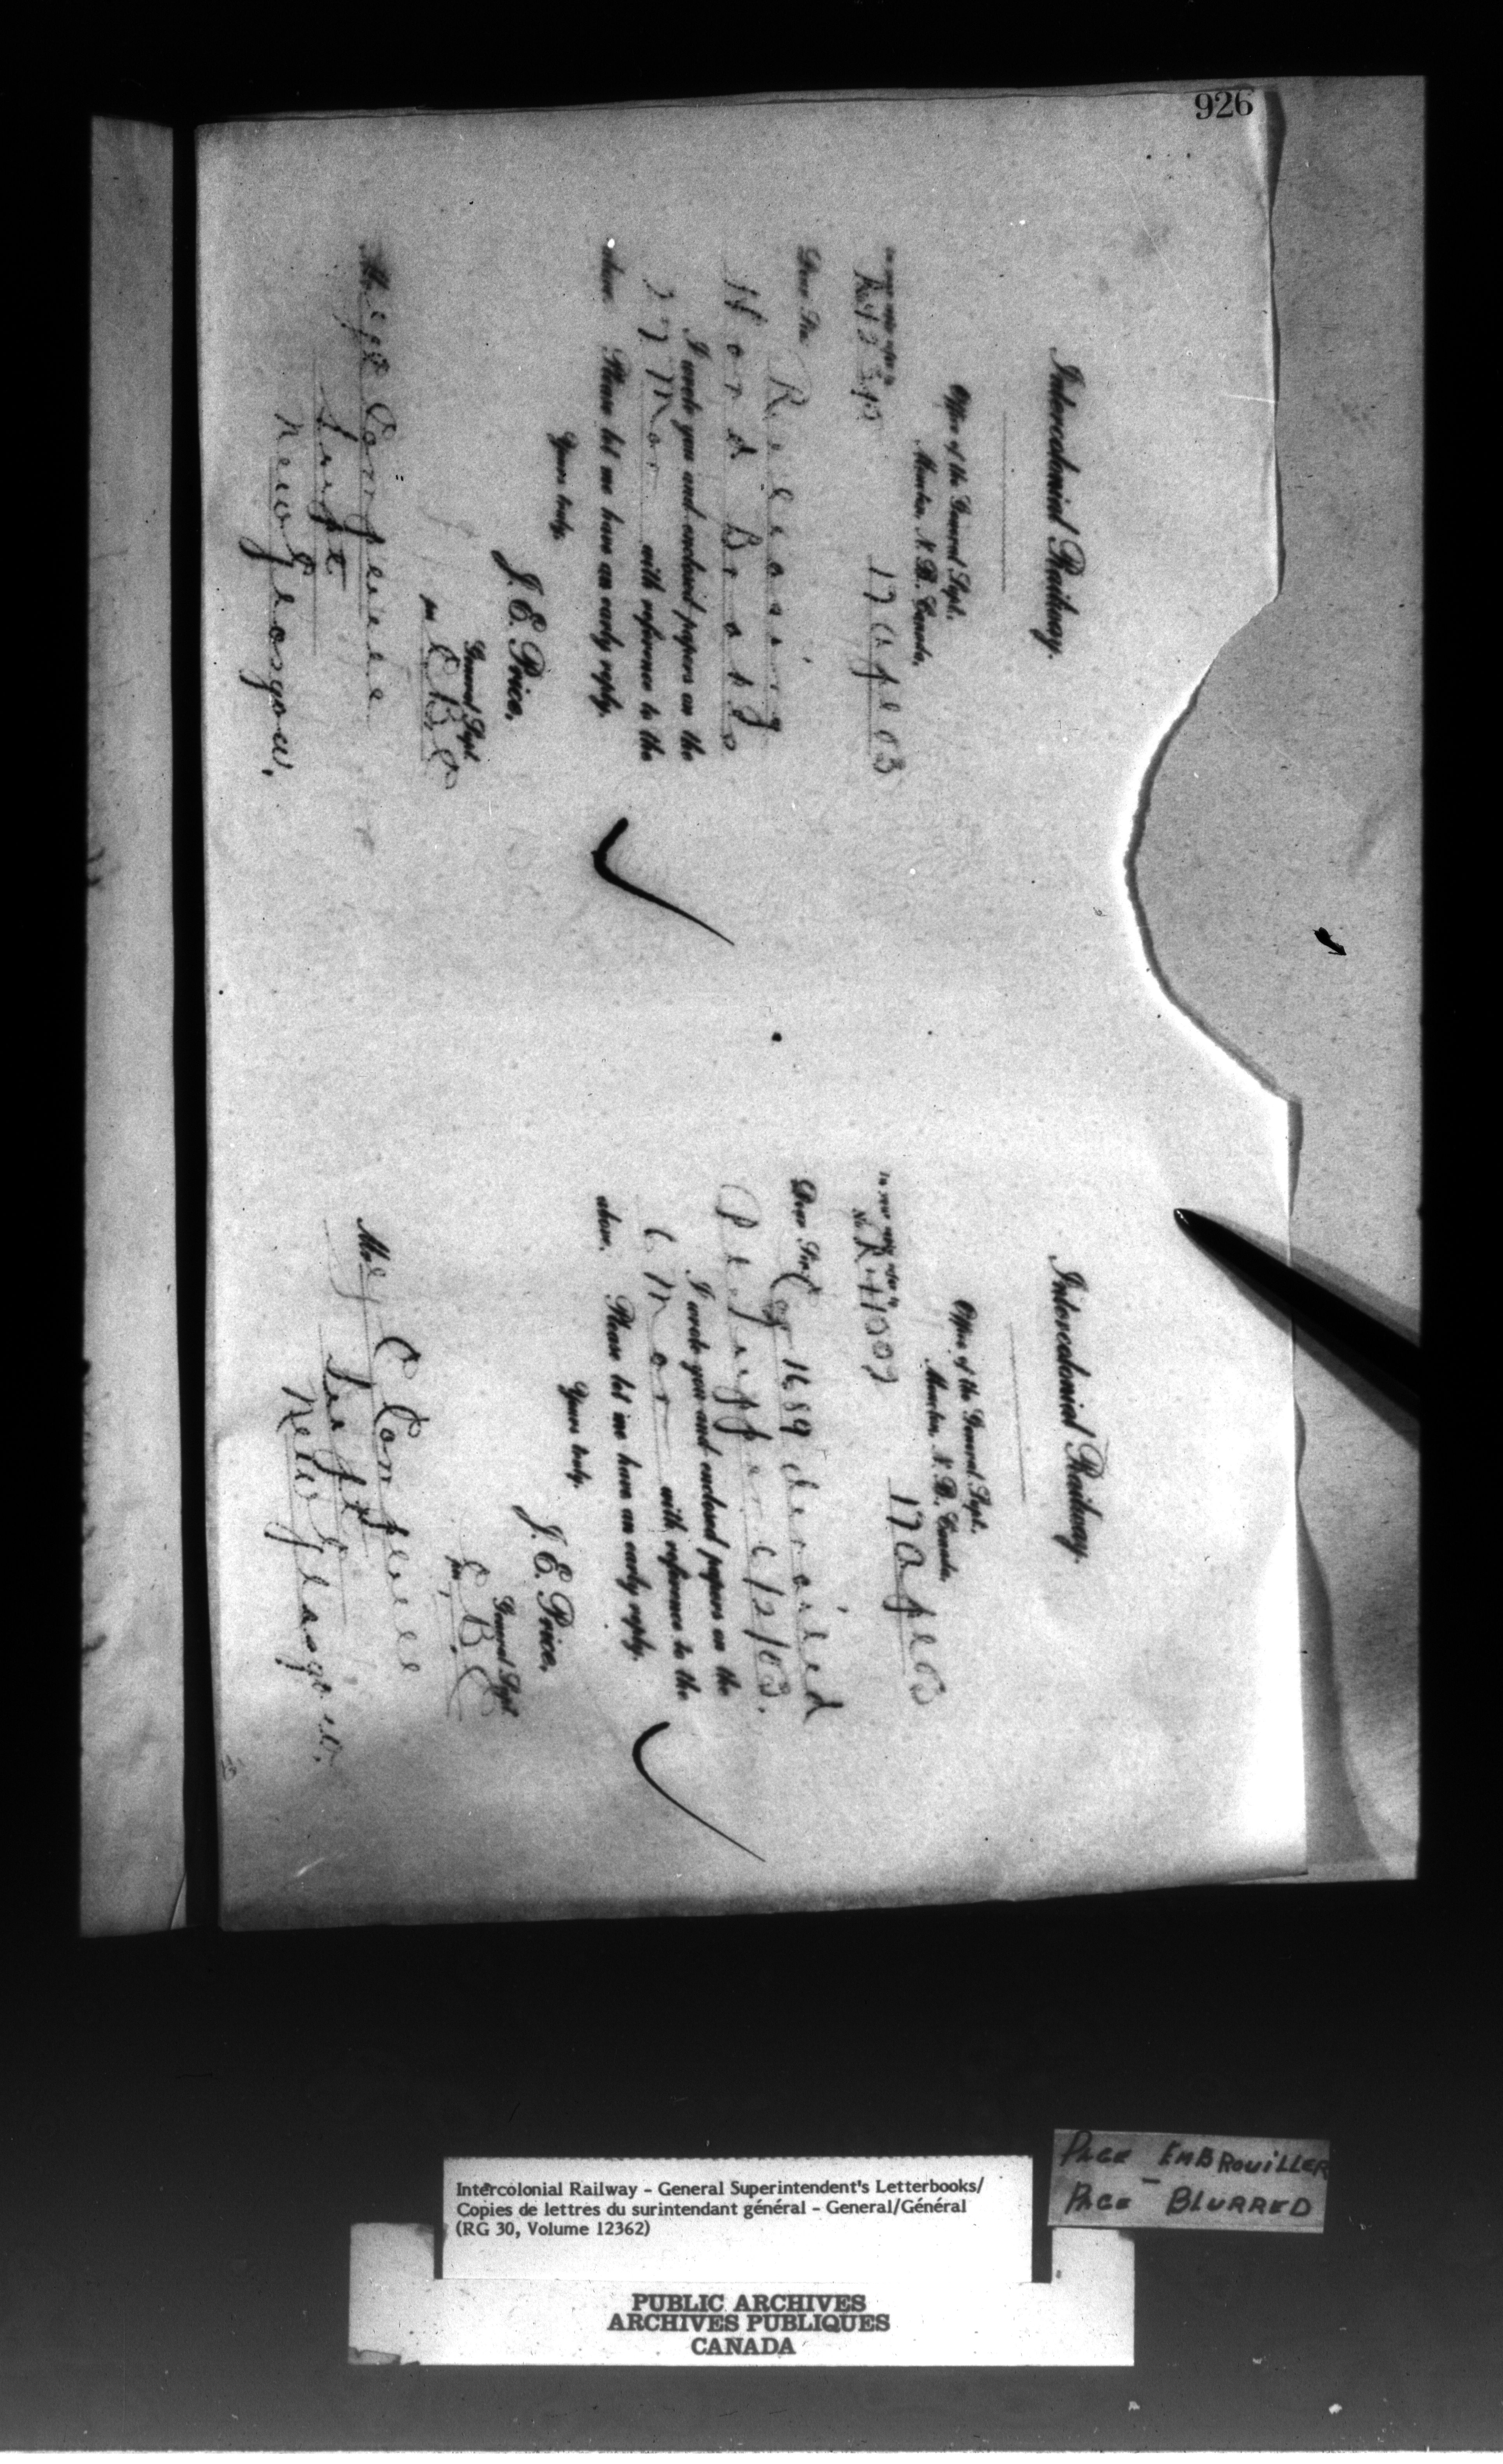 926
Intercolonial Railway.
Office of the General Supt.
Moncton, N. B. Canada,
17 Apl 03
In your reply refer to
No.
Dear Sir
Releasing
Hand Brakes
I wrote you and enclosed papers on the
Mar with reference to the
above. Please let me have an early reply.
Yours truly,
J. E. Price,
General Supt.
per
Mr. Y C Campbell
Supt
New Glasgow.
Intercolonial Railway.
Office of the General Supt.
Moncton, N. B. Canada,
17 Apl 03
In your reply refer to
No.
Dear Sir, Car 1689 derailed
I wrote you and enclosed papers on the
6 Mar with reference to the
above. Please let me have an early reply.
Yours truly,
J. E. Price,
General Supt.
per
Mr Y C Campbell
Supt
New Glasgow.
PAGE EMBROUILLER
PAGE - BLURRED
Intercolonial Railway - General Superintendent's Letterbooks/
Copies de lettres du surintendant général - General/Général
(RG 30, Volume 12362)
PUBLIC ARCHIVES
ARCHIVES PUBLIQUES
CANADA